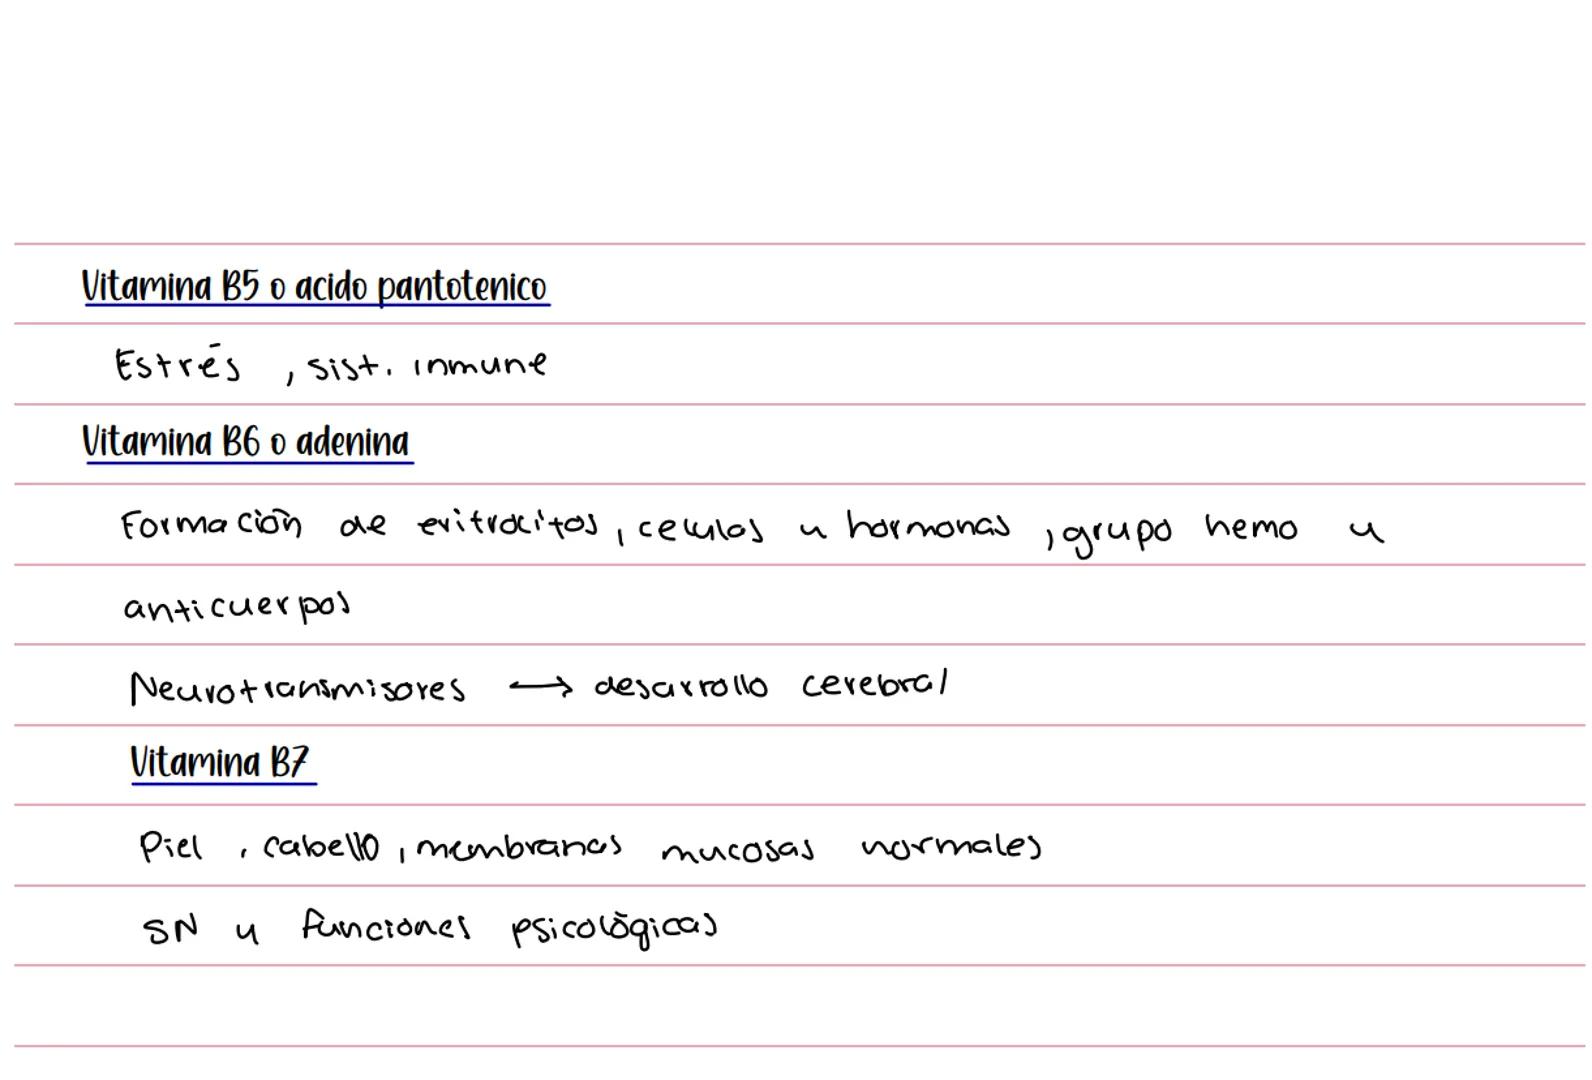 Vitamina B5 o acido pantotenico
Estrés, sist. inmune
Vitamina B6 o adenina
Formación de eritrocitos, celulas y hormonas, grupo hemo y
anticuerpos
Neurotransmisores → desarrollo cerebral
Vitamina B7
Piel, cabello, membranas mucosas normales
SN y funciones psicológicas